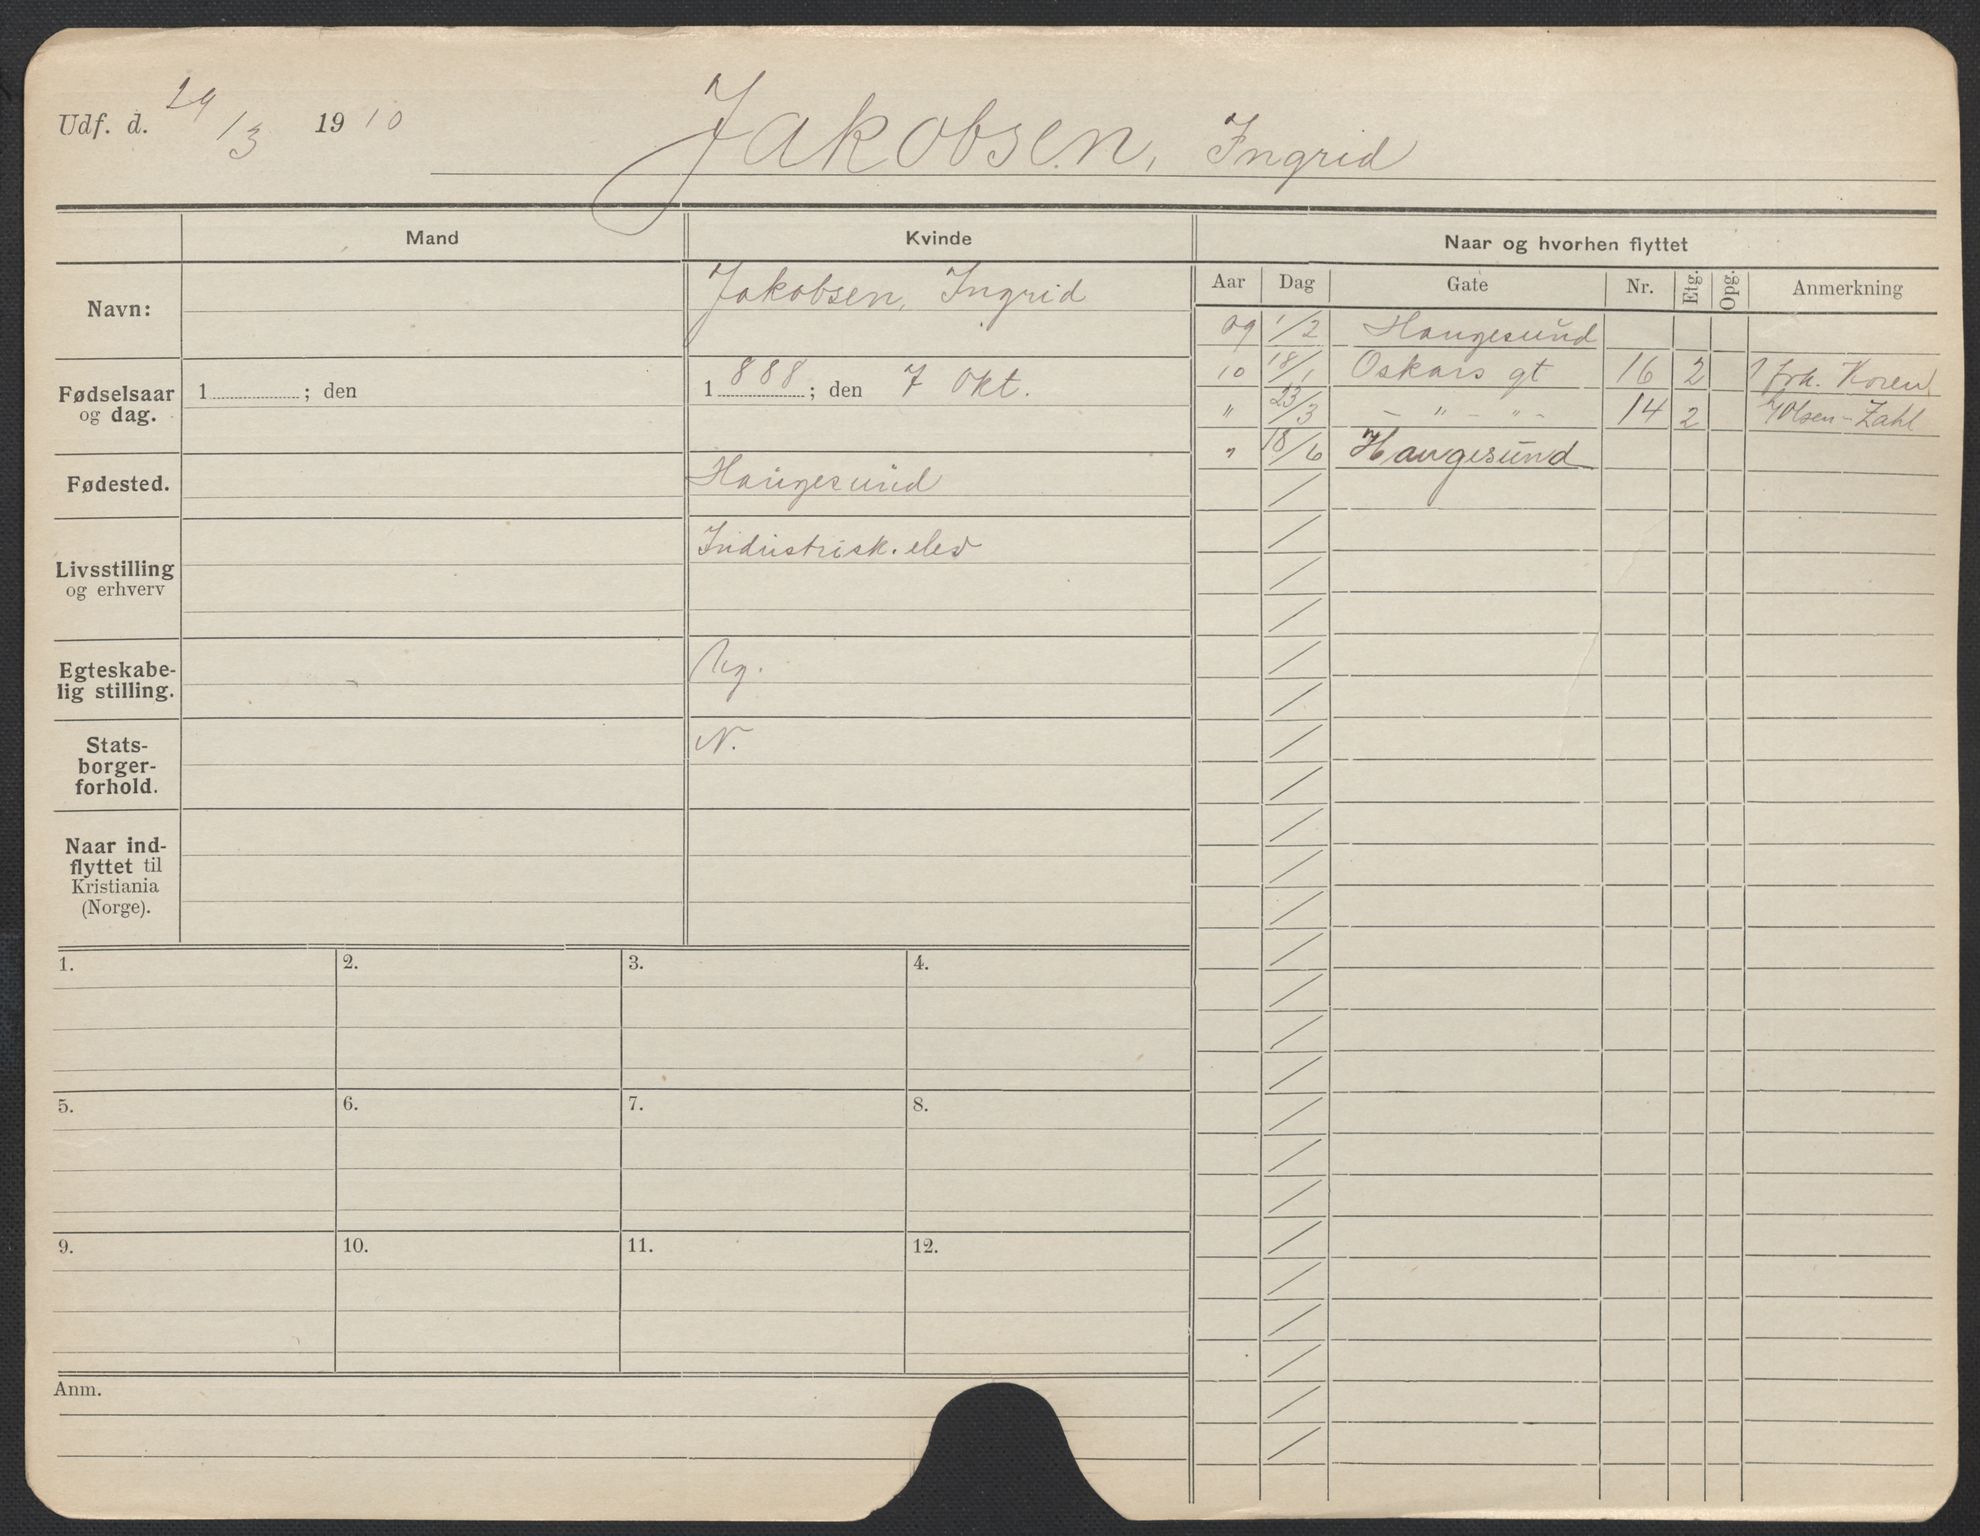 Udf. d. 29/3 1910 Jakobsen, Ingrid
Mand Kvinde Naar og hvorhen flyttet
Aar Dag Gate Nr. Etg. Opg. Anmerkning
Navn: Jakobsen, Ingrid
09 1/2 Haugesund
10 18/1 Oskars gt 16 2 frk. Koren
" 23/3 — " — " — 14 2 Olsen-Zahl
" 18/6 Haugesund
Fødselsaar og dag. 1 ; den 1888 ; den 7 Okt.
Fødested. Haugesund
Livsstilling og erhverv Industrisk. elev
Egteskabe-
lig stilling. Ug.
Stats-
borger-
forhold. N.
Naar ind-
flyttet til
Kristiania
(Norge).
1. 2. 3. 4.
5. 6. 7. 8.
9. 10. 11. 12.
Anm.